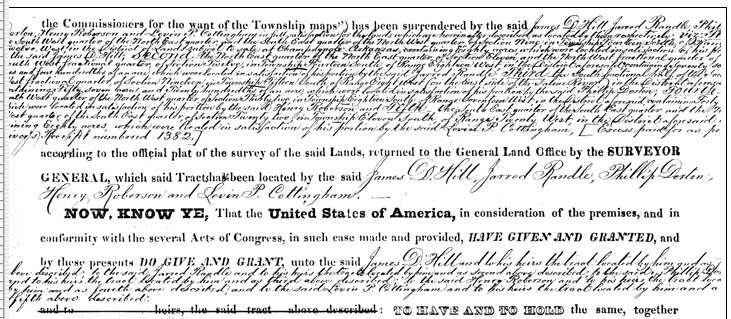 the Commissioners for the want of the Township maps") has been surrendered by the said James D. Hill, Jarred Randle, Phil
Dorton, Henry Roberson and Levin P. Cottingham, in full satisfaction for the lands which are hereinafter described, as located by them respectively, viz: 
South West quarter of the North East quarter, and the South East quarter of the North West quarter, of Section Nine, in Township Fourteen South, of Range
Twelve West, in the District of Lands subject to sale at Champagnole, Arkansas, containing Eighty acres, which were located in satisfaction of his
the said James D. Hill. Second. The of the North East quarter, of Section Eleven, and the North West fractional quarter of
of Section Twelve, in Township South, of Range West, in the District
and four hundredths of an acre, which were located in satisfaction of his portion by the said Jarred Randle. Third. the South fractional half, of the
West fractional quarter, of Section in Township Fifteen South, of Range Eight West, in the District aforesaid
containing Fifty Seven acres, and Twenty hundredths of an acre, which were located in satisfaction of his portion by the said Phillip Dorton. Fourth.
South West quarter, of the North East quarter, of Section Thirty, in Township Eighteen South, of Range Fourteen West, in the District aforesaid, containing
which were located in satisfaction of his portion by the said Henry Roberson, and Fifth. the of the South East quarter, and the
West quarter, of the South East quarter, of Section Twenty two, in Township Eleven South, of Range Twenty West, in the District aforesaid,
containing Eighty acres, which were located in satisfaction of his portion by the said Levin P. Cottingham, [Excess paid for as pe
Receipt numbered 1382.]
according to the official plat of the survey of the said Lands, returned to the General Land Office by the SURVEYOR
GENERAL, which said Tracts have been located by the said James D. Hill, Jarrod Randle, Phillip Dorton,
Henry Roberson and Levin P. Cottingham. —
NOW, KNOW YE, That the United States of America, in consideration of the premises, and in
conformity with the several Acts of Congress, in such case made and provided, HAVE GIVEN AND GRANTED, and
by these presents DO GIVE AND GRANT, unto the said James D. Hill and to his heirs the tract located by him and
above described: to the said Jarrod Randle and to his heirs the tract located by him and as second above described: to the said Phillip Do
and to his heirs the tract located by him and as third above described: to the said Henry Roberson and to his heirs the tract loca
by him and as fourth above described; and to the said Levin P. Cottingham and to his heirs the tract located by him and a
fifth above described:
and to heirs, the said tract above described: TO HAVE AND TO HOLD the same, together